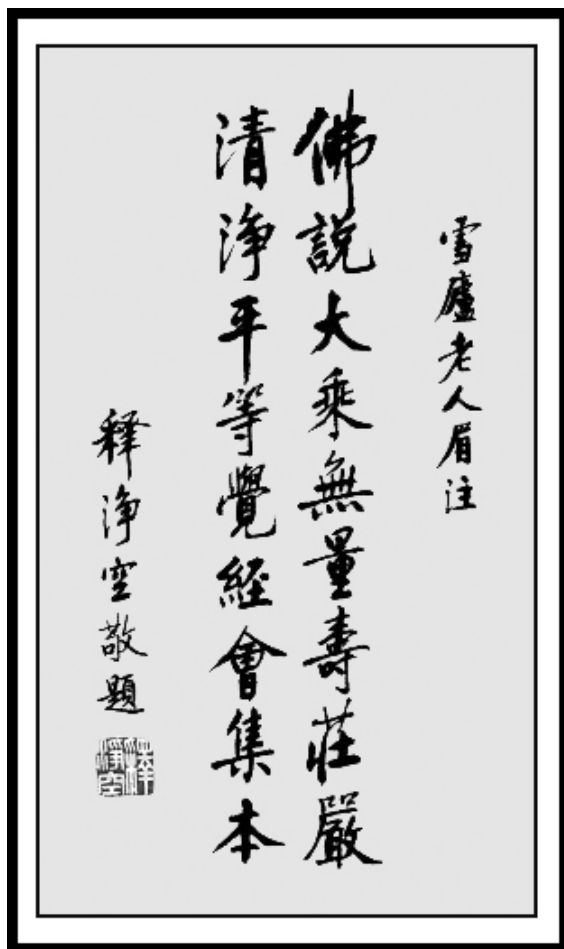 雪廬老人眉注
佛説大乘無量壽莊嚴
清淨平等覺經會集本
釋淨空敬題
釋淨空